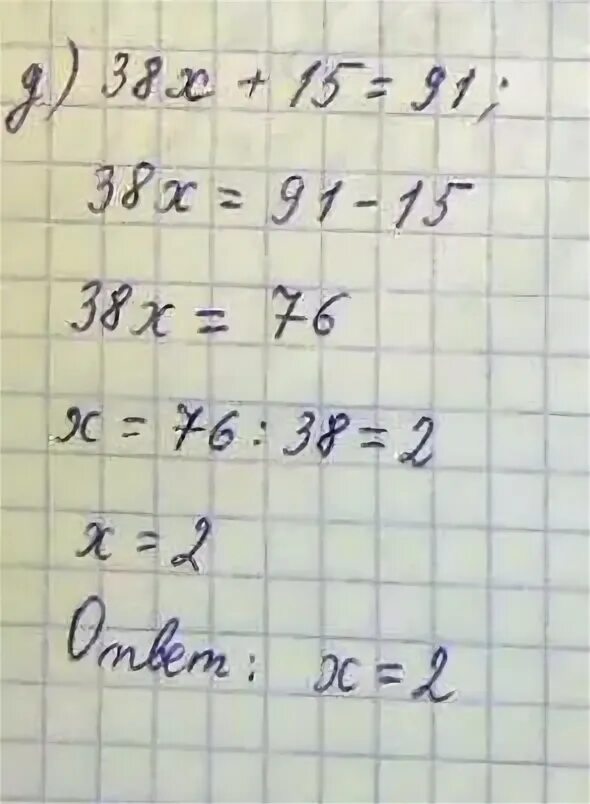 д) 38x + 15 = 91;
38x = 91 - 15
38x = 76
x = 76 : 38 = 2
x = 2
Ответ: x = 2